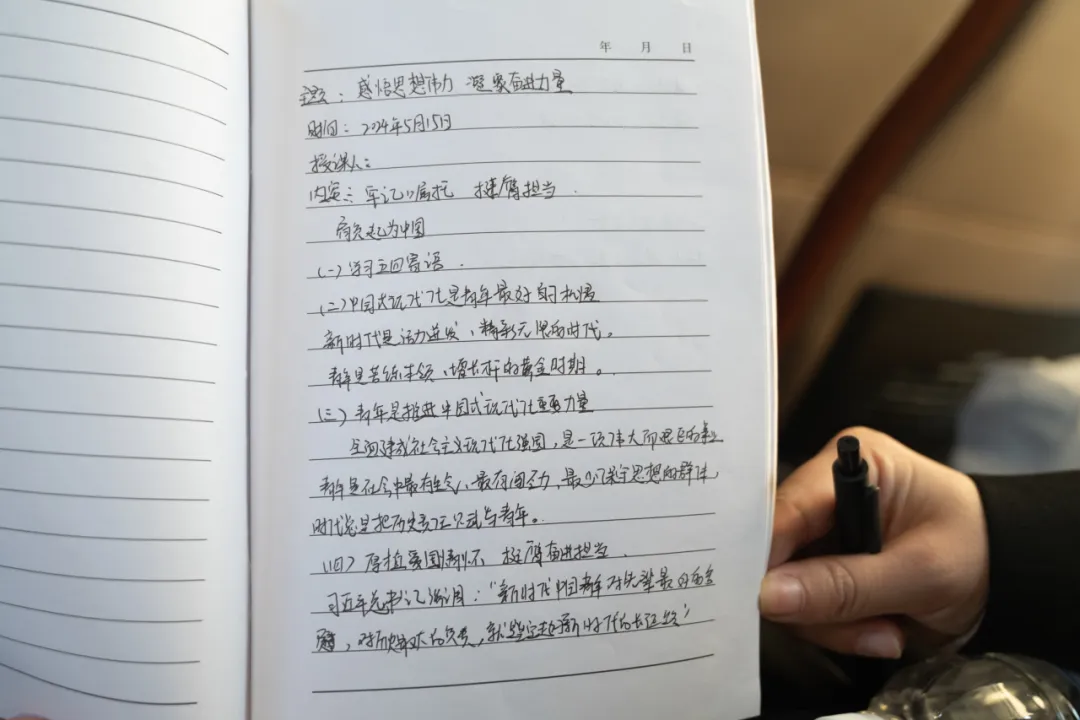 年 月 日
主题：感悟思想伟力 凝聚奋进力量
时间：2024年5月15日
授课人：
内容：牢记嘱托 挺膺担当.
为中国
(一)学习五四寄语.
(二)中国式现代化是青年最好的机遇
新时代是活力迸发、精彩无限的时代。
青年是苦练本领、增长才干的黄金时期。
(三)青年是推进中国式现代化重要力量
全面建成社会主义现代化强国,是一项伟大而艰巨的事业
青年是社会中最有生气、最有闯劲、最少保守思想的群体,
时代总是把历史责任赋与青年。
(四)厚植爱国情怀 挺膺奋进担当.
习近平总书记强调:“新时代中国青年对先辈最好的告
慰,对历史的负责,就是走好新时代的长征路”